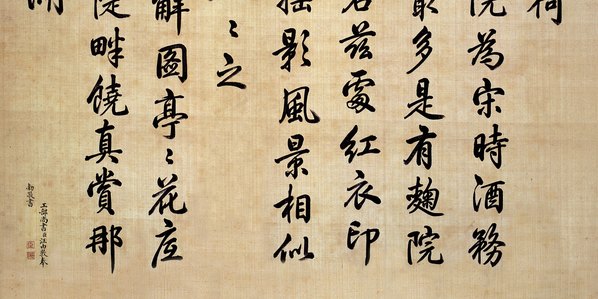 荷
院為宋時酒務
最多是有麴院
名茲處紅衣印
搖影風景相似
〻之
解圖亭〻花底
堤畔饒真賞那
湖
工部尚書臣汪由敦奉
勅敬書